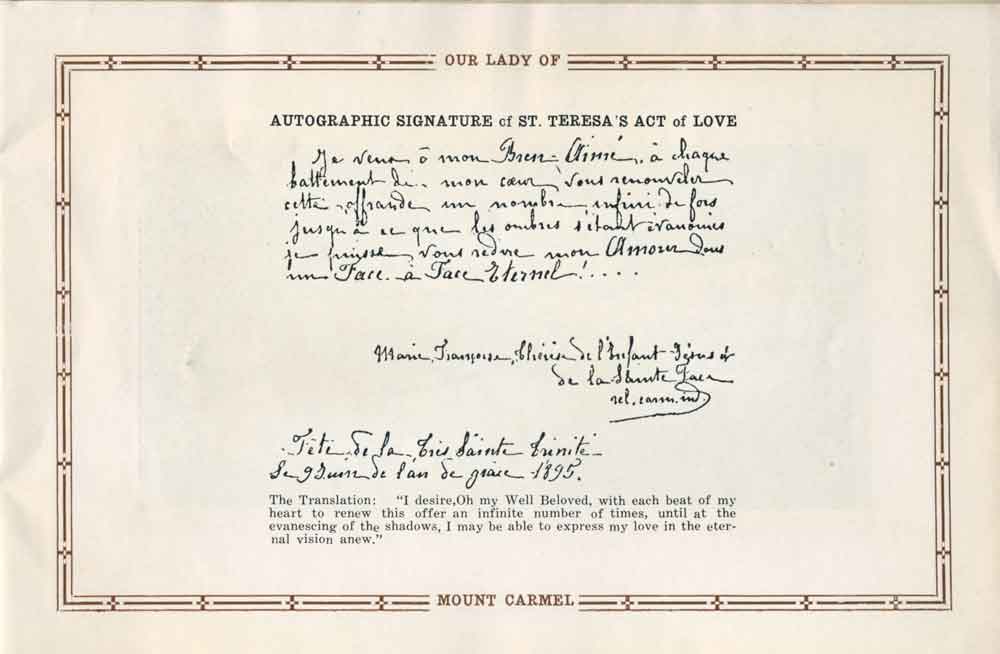 OUR LADY OF
AUTOGRAPHIC SIGNATURE of ST. TERESA'S ACT of LOVE
Je veux ô mon Bien-Aimé, à chaque
battement de mon cœur vous renouveler
cette offrande un nombre infini de fois
jusqu'à ce que les ombres s'étant évanouies
je puisse vous redire mon Amour dans
un Face à Face Eternel!....
Marie, Françoise, Thérèse de l'Enfant Jésus et
de la Sainte Face
rel. carm. ind.
Fête de la Très Sainte Trinité
Le 9 Juin de l'an de grâce 1895.
The Translation: "I desire,Oh my Well Beloved, with each beat of my
heart to renew this offer an infinite number of times, until at the
evanescing of the shadows, I may be able to express my love in the eter-
nal vision anew."
MOUNT CARMEL